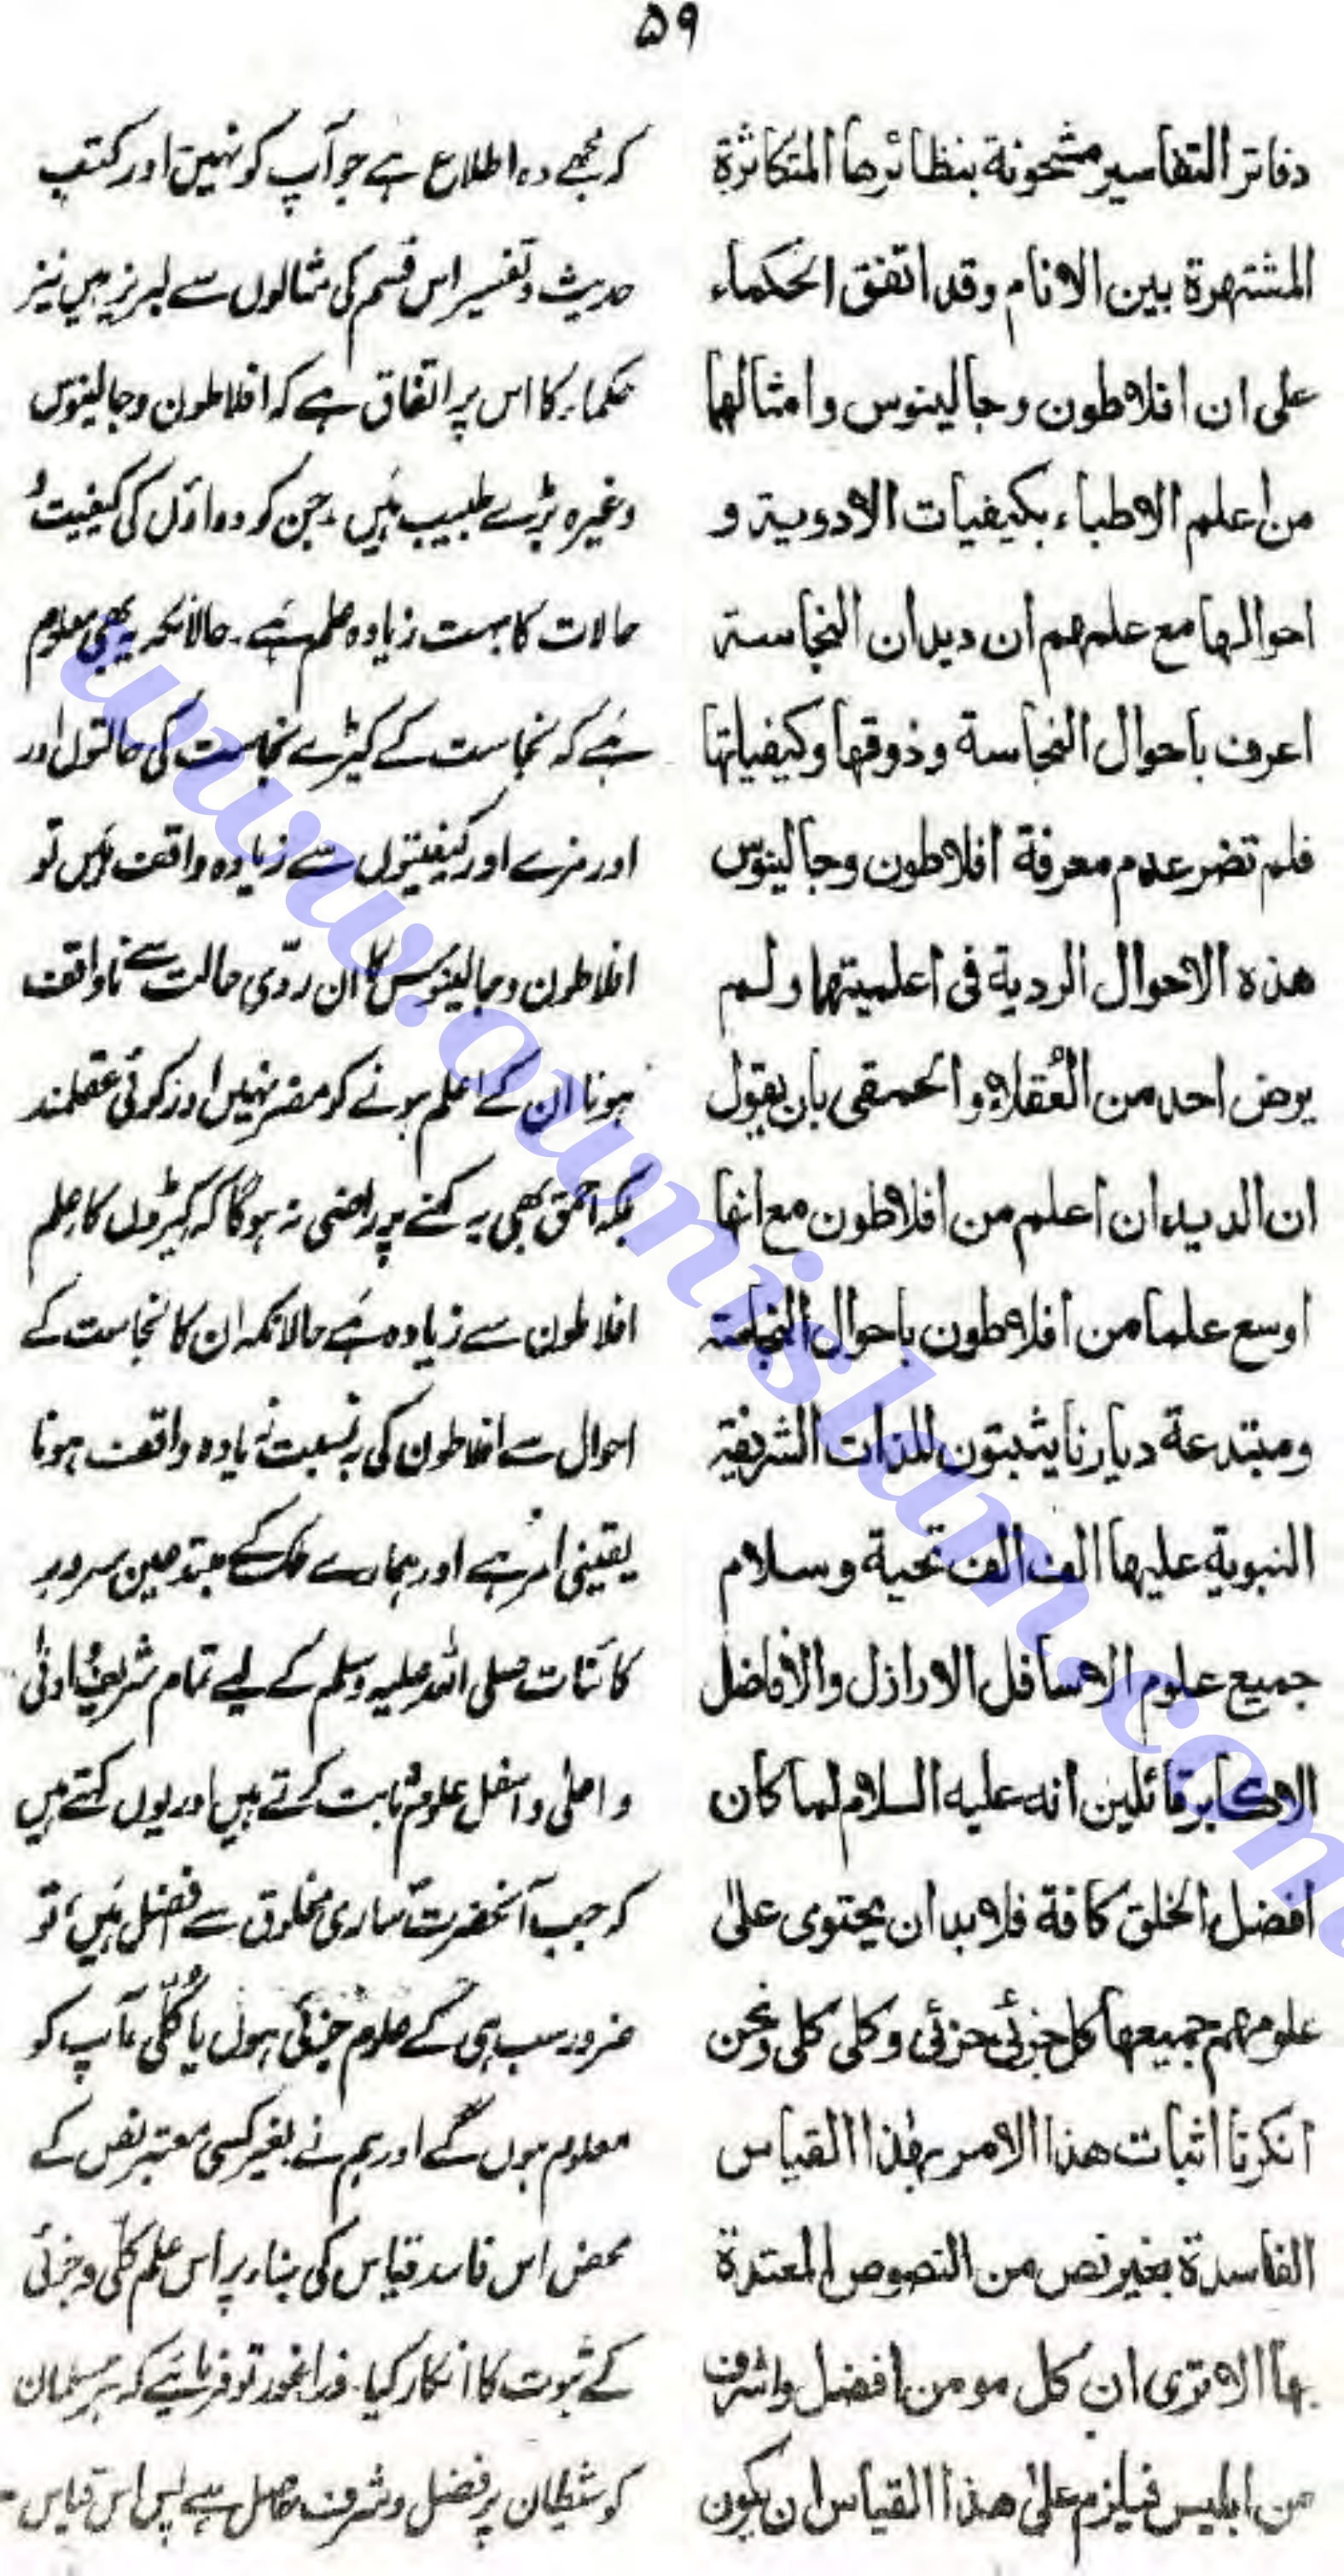 ۵۹
دفاتر التفاسير مشحونة بنظائرها المتكاثرة
المشتهرة بين الانام وقد اتفق الحكماء
على ان افلاطون وجالينوس وامثالهما
من اعلم الاطباء بكيفيات الادوية و
احوالها مع علمهم ان ديدان النجاسة
اعرف باحوال النجاسة وذوقها وكيفياتها
فلم تضر عدم معرفة افلاطون وجالينوس
هذه الاحوال الردية فى اعلميتهما ولم
يرض احد من العُقلاء والحمقى بان يقول
ان الديدان اعلم من افلاطون مع انها
اوسع علما من افلاطون باحوال النجاسة
ومبتدعة ديارنا يثبتون للذات الشريفة
النبوية عليها الف الف تحية وسلام
جميع علوم الاسافل الاراذل والافاضل
الاكابر قائلين انه عليه السلام لما كان
افضل الخلق كافة فلابد ان يحتوى على
علومهم جميعها كل جزئى جزئى وكلى كلى ونحن
انكرنا اثبات هذا الامر بهذا القياس
الفاسدة بغير نص من النصوص المعتدة
بها الا ترى ان كل مومن افضل واشرف
من ابليس فيلزم على هذا القياس ان يكون
کہ مجھے وہ اطلاع ہے جو آپ کو نہیں اور کتب
حدیث و تفسیر اس قسم کی مثالوں سے لبریز ہیں نیز
حکماء کا اس پر اتفاق ہے کہ افلاطون و جالینوس
وغیرہ بڑے طبیب ہیں۔ جن کو دواؤں کی کیفیت و
حالات کا بہت زیادہ علم ہے۔ حالانکہ یہ بھی معلوم
ہے کہ نجاست کے کیڑے نجاست کی حالتوں اور
اور مزے اور کیفیتوں سے زیادہ واقف ہیں تو
افلاطون و جالینوس کا ان ردّی حالت سے ناواقف
ہونا ان کے اعلم ہونے کو مضر نہیں اور کوئی عقلمند
بلکہ احمق بھی یہ کہنے پر راضی نہ ہوگا کہ کیڑوں کا علم
افلاطون سے زیادہ ہے حالانکہ ان کا نجاست کے
احوال سے افلاطون کی بہ نسبت زیادہ واقف ہونا
یقینی امر ہے اور ہمارے ملک کے مبتدعین سرور
کائنات صلی اللہ علیہ وسلم کے لیے تمام شریف و ادنیٰ
و اعلیٰ و اسفل علوم ثابت کرتے ہیں اور یوں کہتے ہیں
کہ جب آنحضرتؐ ساری مخلوق سے افضل ہیں، تو
ضرور سب ہی کے علوم جزئی ہوں یا کُلّی آپ کو
معلوم ہوں گے اور ہم نے بغیر کسی معتبر نص کے
محض اس فاسد قیاس کی بناء پر اس علم کلّی و جزئی
کے ثبوت کا انکار کیا۔ ذرا غور تو فرمائیے کہ ہر مسلمان
کو شیطان پر فضل و شرف حاصل ہے پس اس قیاس
www.ownislam.com